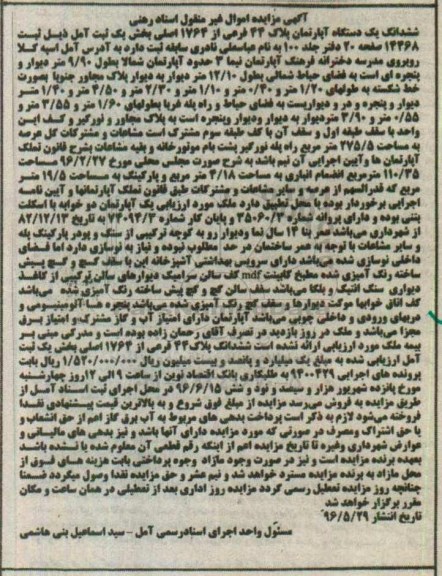 آگهی مزایده اموال غیر منقول اسناد رهنی
ششدانگ یک دستگاه آپارتمان پلاک ۴۴ فرعی از ۱۷۶۴ اصلی بخش یک ثبت آمل ذیل ثبت
۱۴۴۶۸ صفحه ۲۰ دفتر جلد ۱۰۰ به نام عباسعلی نادری سابقه ثبت دارد به آدرس آمل اسپه کلا
روبروی مدرسه دخترانه فرهنگ آپارتمان نیما ۳ حدود آپارتمان شمالا بطول ۹/۹۰ متر دیوار و
پنجره ای است به فضای حیاط شمالی بطول ۱۲/۱۰ متر دیوار به دیوار پلاک مجاور جنوبا بصورت
خط شکسته به طولهای ۱/۲۰ متر و ۰/۴۰ متر و ۱/۱۰ متر و ۲/۳۰ متر و ۴/۵۰ متر و ۱/۴۰ متر
دیوار و پنجره و در و دیواریست به فضای حیاط و راه پله فربا بطولهای ۱/۶۰ متر و ۳/۵۵ متر و
۰/۵۵ متر و ۳/۹۰ متردیوار به دیوار ودیوار وپنجره است به پلاک مجاور و نورگیر و کف این
واحد با سقف طبقه اول و سقف آن با کف طبقه سوم مشترک است مشاعات و مشترکات کل عرصه
به مساحت ۲۷۵/۵ متر مربع راه پله نورگیر پشت بام موتورخانه و بقیه مشاعات بشرح قانون تملک
آپارتمان ها وآیین اجرایی آن نیم باشد به شرح صورت مجلس محلی مورخ ۹۶/۲/۲۷ مساحت
۱۱۰/۳۵ مترمربع انضمام انباری به مساحت ۴/۱۸ متر مربع و پارکینگ به مساحت ۱۹/۵ متر
مربع که قدرالسهم از عرصه و سایر مشاعات و مشترکات طبق قانون تملک آپارتمانها و آیین نامه
اجرایی برخوردار بوده با محل تطبیق دارد ملک مورد ارزیابی یک آپارتمان دو خوابه با اسکلت
بتنی بوده و دارای پروانه شماره ۳۵۰۶۰/۳ و پایان کار شماره ۷۴۰۹۴/۳ به تاریخ ۸۲/۱۲/۱۳
از شهرداری می‌باشد عمر بنا ۱۴ سال نما ودیوار رو به کوچه ترکیبی از سنگ و پودر پارکینگ پله
و سایر مشاعات با توجه به عمر ساختمان در حد مطلوب نبوده و نیاز به نوسازی دارد اما فضای
داخلی نوسازی شده می‌باشد دارای سرویس بهداشتی آشپزخانه اپن با سقف گچ و گچ پیش
ساخته رنگ آمیزی شده مطبخ کابینت mdf کف سالن سرامیک دیوارهای سالن ترکیبی از کاغذ
دیواری سنگ آنتیک و بلکا می‌باشد سقف سالن گچ و گچ پیش ساخته رنگ آمیزی شده می‌باشد
کف اتاق خوابها موکت دیوارها و سقف گچ رنگ آمیزی شده می‌باشد پنجره هـا آلومینیومی و
دربهای ورودی و داخلی چوبی می‌باشد آپارتمان دارای امتیاز آب و گاز مشترک و امتیاز برق
مجزا می‌باشد و ملک در روز بازدید در تصرف آقای رحمان زاده بوده است و مدرکی مبنی بر
بیمه ملک مورد ارزیابی ارائه نشده است ششدانگ پلاک ۴۴ فرعی از ۱۷۶۴ اصلی بخش یک ثبت
آمل ارزیابی شده به مبلغ یک میلیارد و پانصد و بیست میلیون ریال ۱/۵۲۰/۰۰۰/۰۰۰ ریال بابت
پرونده های اجرایی ۹۴۰۰۴۲۹ به طلبکاری بانک اقتصاد نوین از ساعت ۹ الی ۱۲ روز چهارشنبه
مورخ پانزده شهریور هزار و سیصد و نود و شش ۹۶/۶/۱۵ در محل اجرای ثبت اسـناد آمـل از
طریق مزایده به فروش می‌رسد مزایده از مبلغ فوق شروع و به بالاترین قیمت پیشنهادی نقدا
فروخته می‌شود لازم به ذکر است پرداخت بدهی های مربوط به آب برق گاز اعم از حق انشعاب و
یا حق اشتراک ومصرف در صورتی که مورد مزایده دارای آنها باشد و نیز بدهی های مالیـاتی و
عوارض شهرداری وغیره تا تاریخ مزایده اعم از اینکه رقم قطعی آن معلوم شده یا نشده باشـد
بعهده برنده مزایده است و نیز در صورت وجود مازاد وجوه پرداختی بابت هزینه هـای فـوق از
محل مازاد به برنده مزایده مسترد خواهد شد و نیم عشر و حق مزایده نقدا وصول میگردد ضمنا
چنانچه روز مزایده تعطیل رسمی گردد مزایده روز اداری بعد از تعطیلی در همان ساعت و مکان
مقرر برگزار خواهد شد
تاریخ انتشار ۹۶/۵/۲۹
مسئول واحد اجرای اسنادرسمی آمل – سید اسماعیل بنی هاشمی